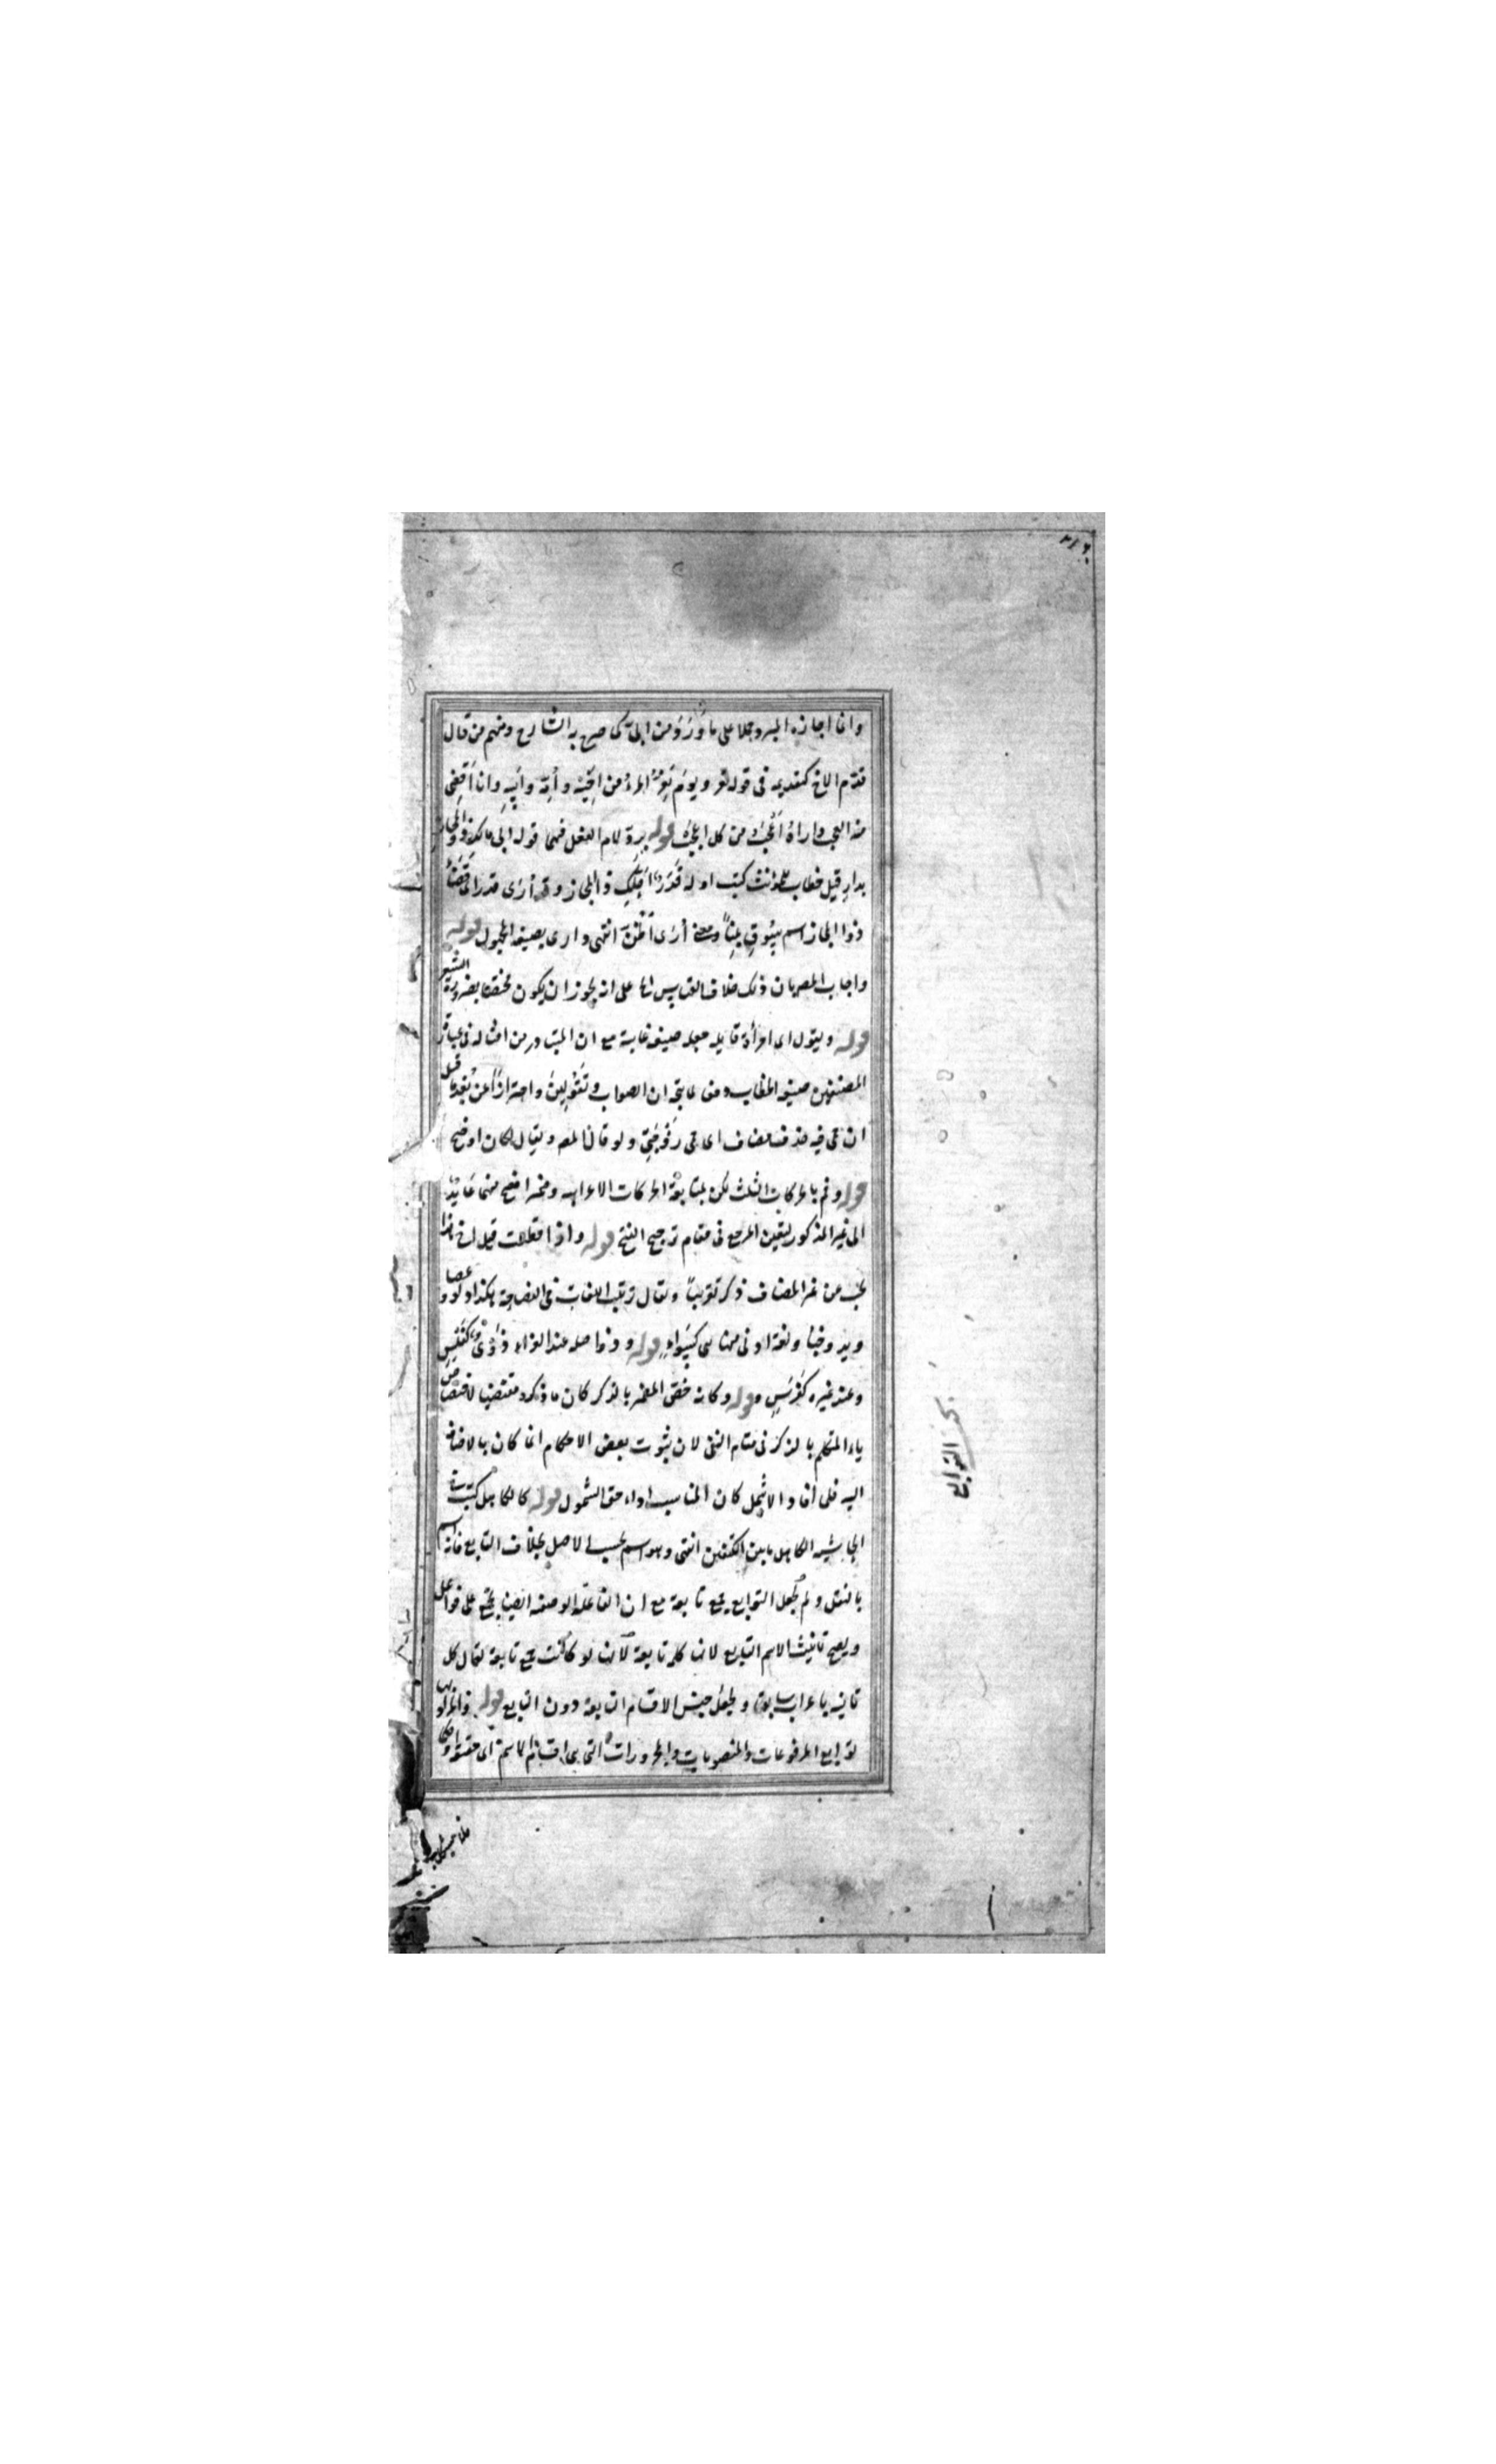 وانما اجازه المبرد حملا على ما ورد من ابيّ كما صرح به الشارح ومنهم من قال
قدم الاخ كتقديمه فى قوله تعالى و يوم يفر المرء من اخيه و أمه و ابيه وانا أقضى
منه العجب واراه أعجب من كل اعجب قوله برد لام الفعل فيهما قوله ابى مالك ذو المجاز
بدار قيل خطاب للمؤنث كتب اوله قدر احلك ذا المجاز وقد أرى قدر اى قضاء
ذو المجاز اسم سوق بمنى ومعنى أرى أظن انتهى و ارى بصيغة المجهول قوله
واجاب المص بان ذلك خلاف القياس انما على انه يجوز ان يكون مختصا بضرورة الشعر
قوله ويقول اى امرأة قايلة جعله صيغة غايبة مع ان المتبادر من امثاله فى عبارة
المصنفين صيغة المخاطب دفعا لما يتجه ان الصواب وتقولين واحترازا عن بعد ما قيل
ان فى فيه حذف مضاف اى فى زوجتى ولو قال المص ويقال لكان اوضح
قوله وفم بالحركات الثلث لكن بمتابعة الحركات الاعرابية وضمير افصح منهما عايد
الى غير المذكور لتعين المرجع فى مقام ترجيح الفتح قوله واذا قطعت قيل اخ هذا
يجب من غير المضاف ذكر تقريبا ويقال ترتيب اللغات فى الفصاحة هكذا دلو و عصا
ويد وخبأ ولغة ادنى منها هى كسواء قوله وذو اصله عند الفراء ذوى كفلس
وعند غيره كفرس قوله وكانه خص المضمر بالذكر كان ما ذكره مقتضيا لاختصاص
ياء المتكلم بالذكر فى مقام النفى لان ثبوت بعض الاحكام انما كان بالاضافة
اليه فلما افاد الاشمل كان المناسب اداء حق الشمول قوله كالكاهل كتب فى
الحاشية الكاهل ما بين الكتفين انتهى وهو اسم بحسب الاصل بخلاف التابع فانه اسم
بالنقل ولم يجعل التوابع جمع تابعة مع ان الفاعلة الوصفية ايضا يجمع على فواعل
ويصح تانيث الاسم التابع لانه كلمة تابعة لانه لو كانت جمع تابعة لقال كل
ثانية باعراب سابقها ولجعل جنس الاقسام التابعة دون التابع قوله والمراد بها
توابع المرفوعات والمنصوبات والمجرورات التى هى اقسام الاسم اى حقيقة و حكما
بحث التوابع